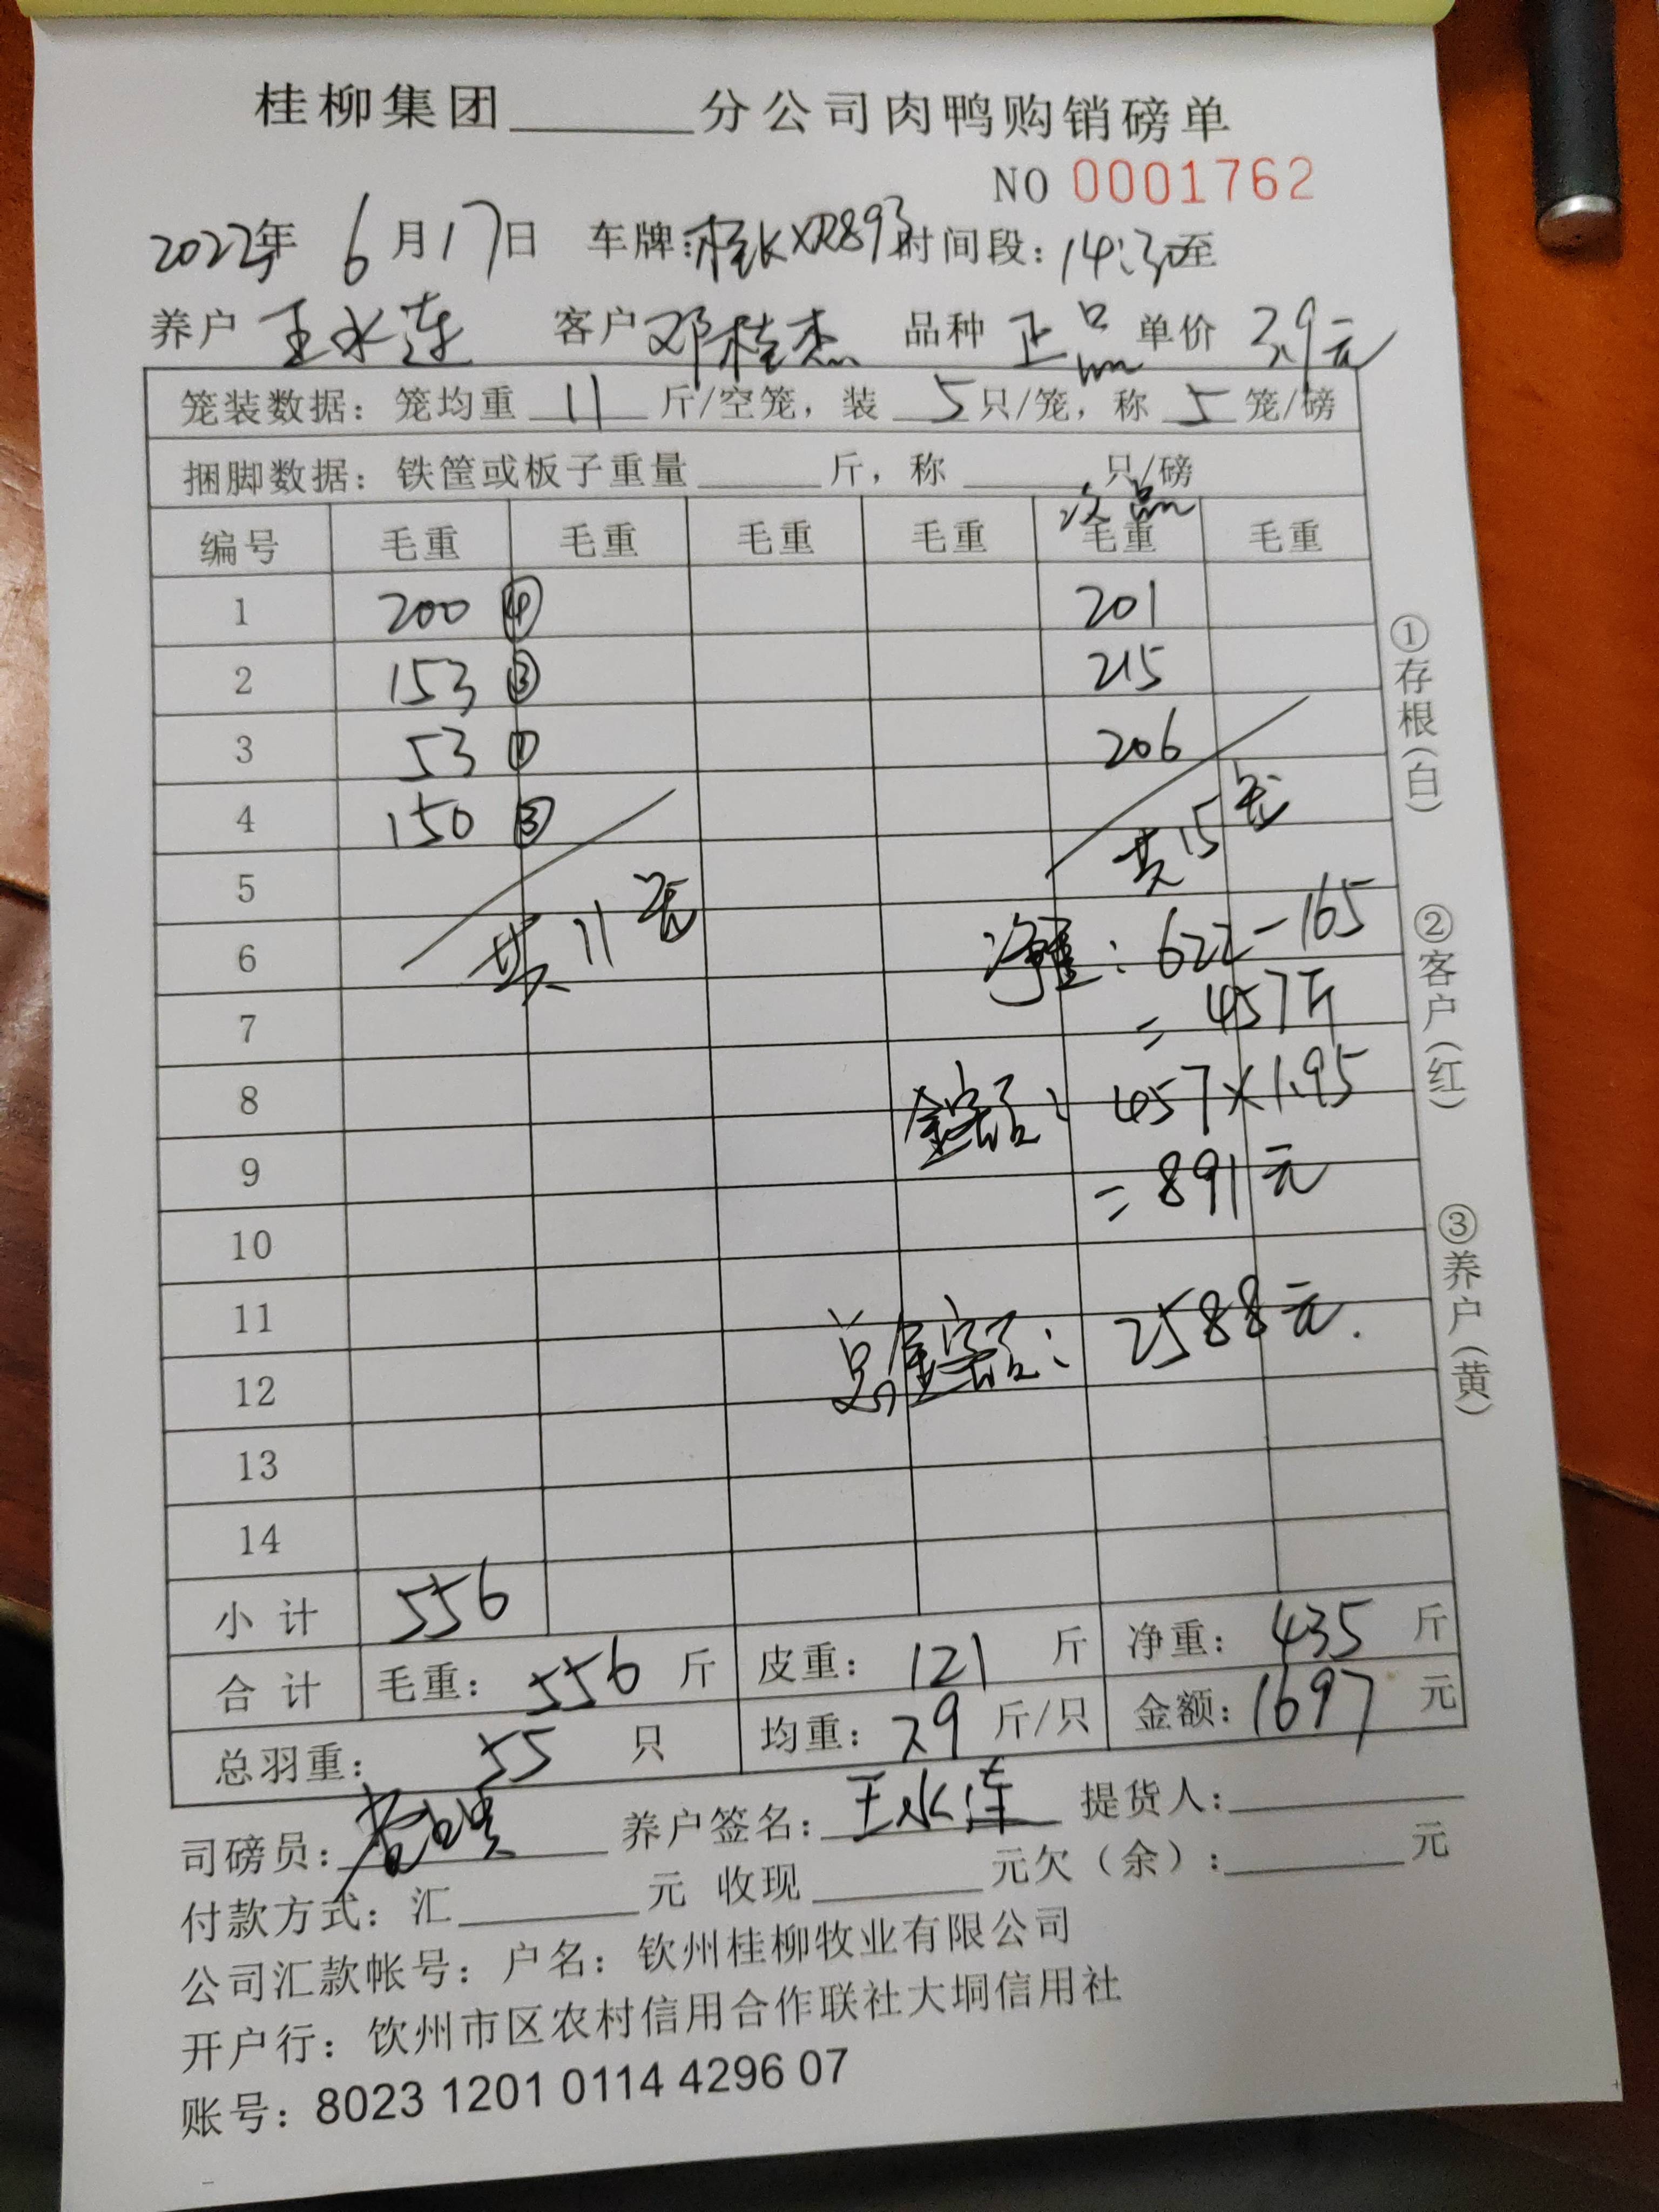 桂柳集团______分公司肉鸭购销磅单
NO 0001762
2022年 6月17日 车牌:桂KXR893 时间段:14:30至
养户 王水连 客户 邓桂杰 品种 正品 单价 3.9元
笼装数据:笼均重 11 斤/空笼,装 5 只/笼,称 5 笼/磅
捆脚数据:铁筐或板子重量______斤,称______只/磅
次品
编号 毛重 毛重 毛重 毛重 毛重 毛重
1 200 ④ 201
2 153 ③ 215
3 53 ① 206
4 150 ③ 共15笼
5
6 共11笼 净重:622-165
7 =457斤
8 金额:457×1.95
9 =891元
10
11 总金额:2588元.
12
13
14
小计 556
合计 毛重:556斤 皮重:121斤 净重:435斤
总羽重:55只 均重:7.9斤/只 金额:1697元
司磅员: 养户签名:王水连 提货人:______
付款方式:汇______元 收现______元欠(余):______元
公司汇款帐号:户名:钦州桂柳牧业有限公司
开户行:钦州市区农村信用合作联社大垌信用社
账号:8023 1201 0114 4296 07
①存根(白)
②客户(红)
③养户(黄)